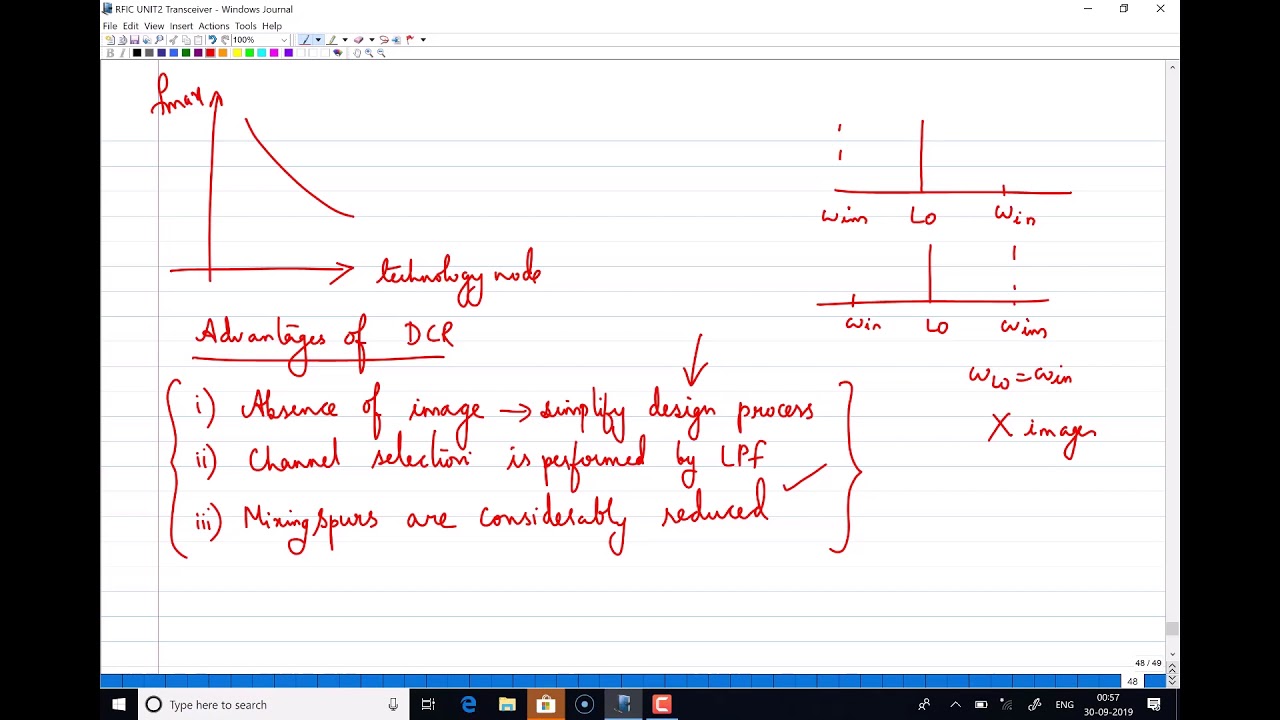 RFIC UNIT2 Transceiver - Windows Journal
File Edit View Insert Actions Tools Help
100%
B I
fmax
technology node
ωim LO ωin
ωin LO ωim
ωLO = ωin
X images
Advantages of DCR
i) Absence of image → simplify design process
ii) Channel selection is performed by LPf
iii) Mixing spurs are considerably reduced ✓
48 / 49
48
Type here to search
ENG
00:57
30-09-2019